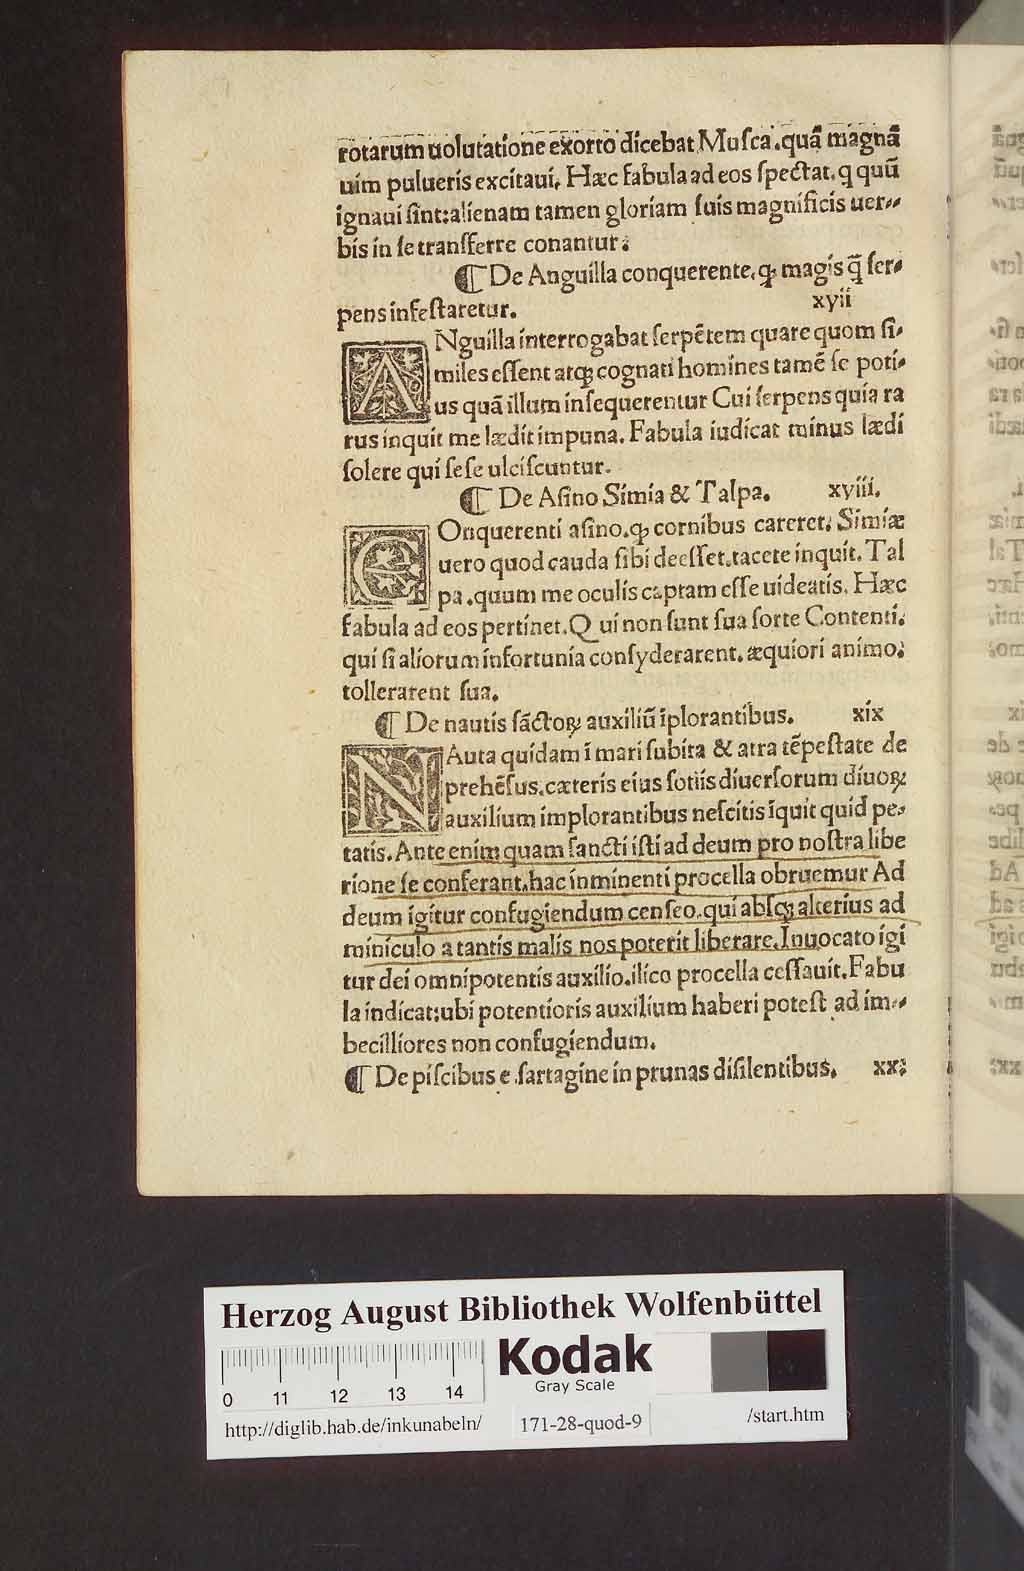 rotarum uolutatione exorto dicebat Muſca.quã magnã
uim pulueris excitaui, Hæc fabula ad eos ſpectat. q quũ
ignaui ſint:alienam tamen gloriam ſuis magnificis uer⸗
bis in ſe tranſferre conantur:
¶ De Anguilla conquerente.ꝙ magis q̃ ſer⸗
pens infeſtaretur. xyii
ANguilla interrogabat ſerpẽtem quare quom ſi⸗
miles eſſent atqꝫ cognati homines tamẽ ſe poti⸗
us quã illum inſequerentur Cui ſerpens quia ra
rus inquit me lædit impuna. Fabula iudicat minus lædi
ſolere qui ſeſe ulciſcuntur.
¶ De Aſino Simia & Talpa. xyiii.
COnquerenti aſino.ꝙ cornibus careret: Simiæ
uero quod cauda ſibi deeſſet.tacete inquit. Tal
pa.quum me oculis captam eſſe uideatis. Hæc
fabula ad eos pertinet.Qui non ſunt ſua ſorte Contenti.
qui ſi aliorum infortunia conſyderarent.æquiori animo:
tollerarent ſua.
¶ De nautis ſãctoꝝ auxiliũ īplorantibus. xix
NAuta quidam ī mari ſubita & atra tẽpeſtate de
prehẽſus.cæteris eius ſotiis diuerſorum diuoꝝ
auxilium implorantibus neſcitis īquit quid pe⸗
tatis.Ante enim quam ſancti iſti ad deum pro noſtra libe
rione ſe conferant.hac inminenti procella obruemur Ad
deum igitur confugiendum cenſeo.qui abſqꝫ alterius ad
miniculo a tantis malis nos poterit liberare.Inuocato igi
tur dei omnipotentis auxilio.ilico procella ceſſauit.Fabu
la indicat:ubi potentioris auxilium haberi poteſt ad im⸗
becilliores non confugiendum.
¶ De piſcibus e.ſartagine in prunas diſilentibus. xx:
Herzog August Bibliothek Wolfenbüttel
Kodak
Gray Scale
0 11 12 13 14
http://diglib.hab.de/inkunabeln/ 171-28-quod-9 /start.htm